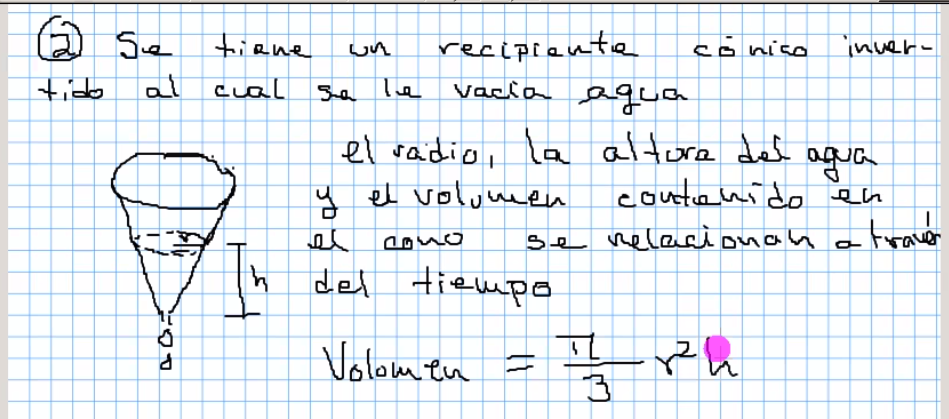 ② Se tiene un recipiente cónico inver-
tido al cual se le vacia agua
el radio, la altura del agua
y el volumen contenido en
el cono se relacionan a través
del tiempo
r
h
Volumen = π/3 r² h